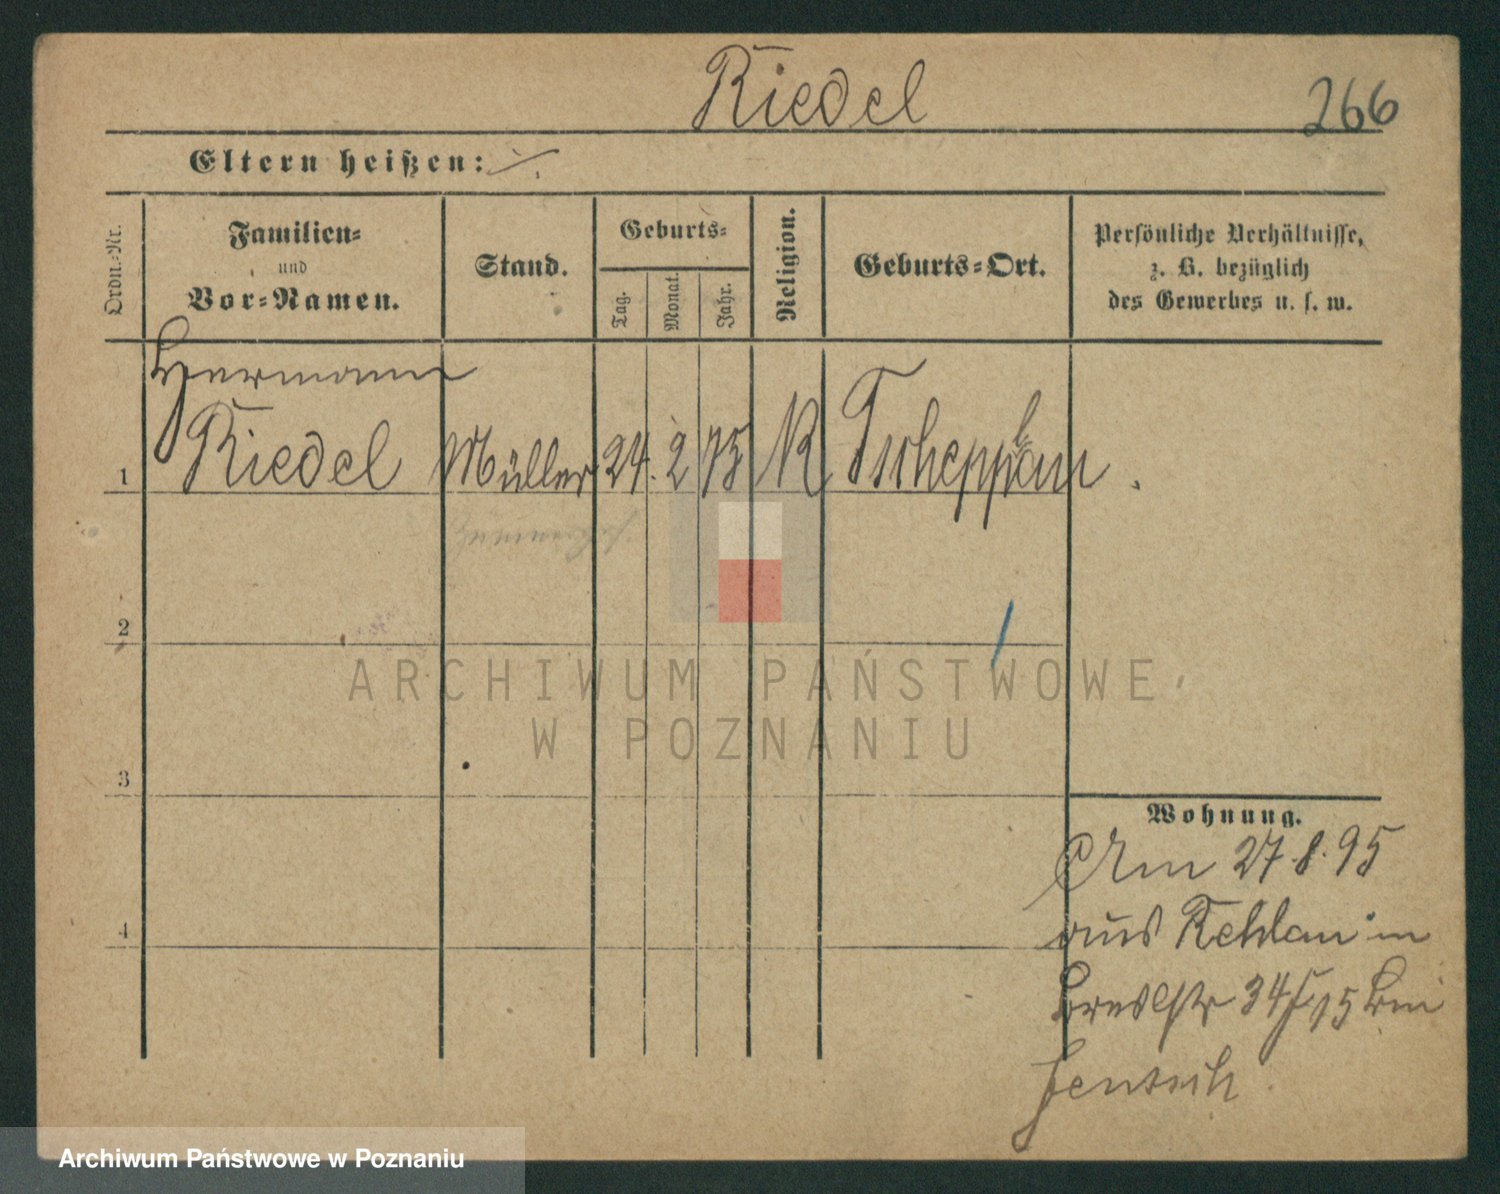 Riedel
266
Eltern heißen: ./.
Ordn.-Nr.
Familien-
und
Vor-Namen.
Stand.
Geburts-
Tag.
Monat.
Jahr.
Religion.
Geburts-Ort.
Persönliche Verhältnisse,
z. B. bezüglich
des Gewerbes u. s. w.
Hermann
1 Riedel Müller 24. 2 75 K
2
3
4
ARCHIWUM PAŃSTWOWE
W POZNANIU
Wohnung.
Am 27.8.95
aus in
Breslstr 34 bei
Jentsch
Archiwum Państwowe w Poznaniu